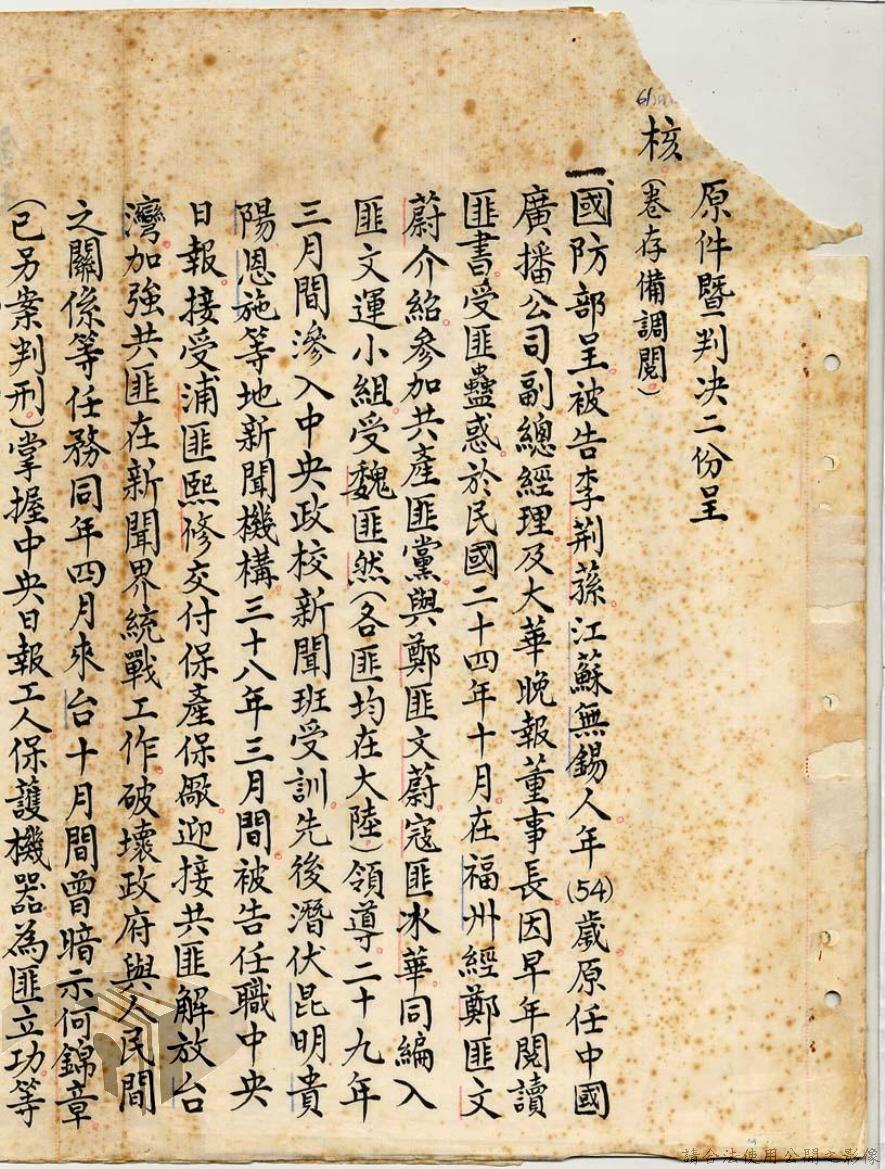 原件暨判決二份呈
核（卷存備調閱。）
一、國防部呈。被告李荊蓀。江蘇無錫人年(54)歲。原任中國
廣播公司副總經理。及大華晚報董事長。因早年閱讀
匪書。受匪蠱惑。於民國二十四年十月。在福州經鄭匪文
蔚介紹。參加共產匪黨。與鄭匪文蔚寇匪冰華。同編入
匪文運小組。受魏匪然（各匪均在大陸）領導。二十九年
三月間滲入中央政校新聞班受訓。先後潛伏昆明。貴
陽恩施等地新聞機構。三十八年三月間。被告任職中央
日報。接受浦匪熙修交付保產保廠。迎接共匪解放台
灣。加強共匪在新聞界統戰工作。破壞政府與人民間
之關係等任務。同年四月來台。十月間曾暗示何錦章
（已另案判刑。）掌握中央日報工人保護機器。為匪立功等
請合法使用公開之影像